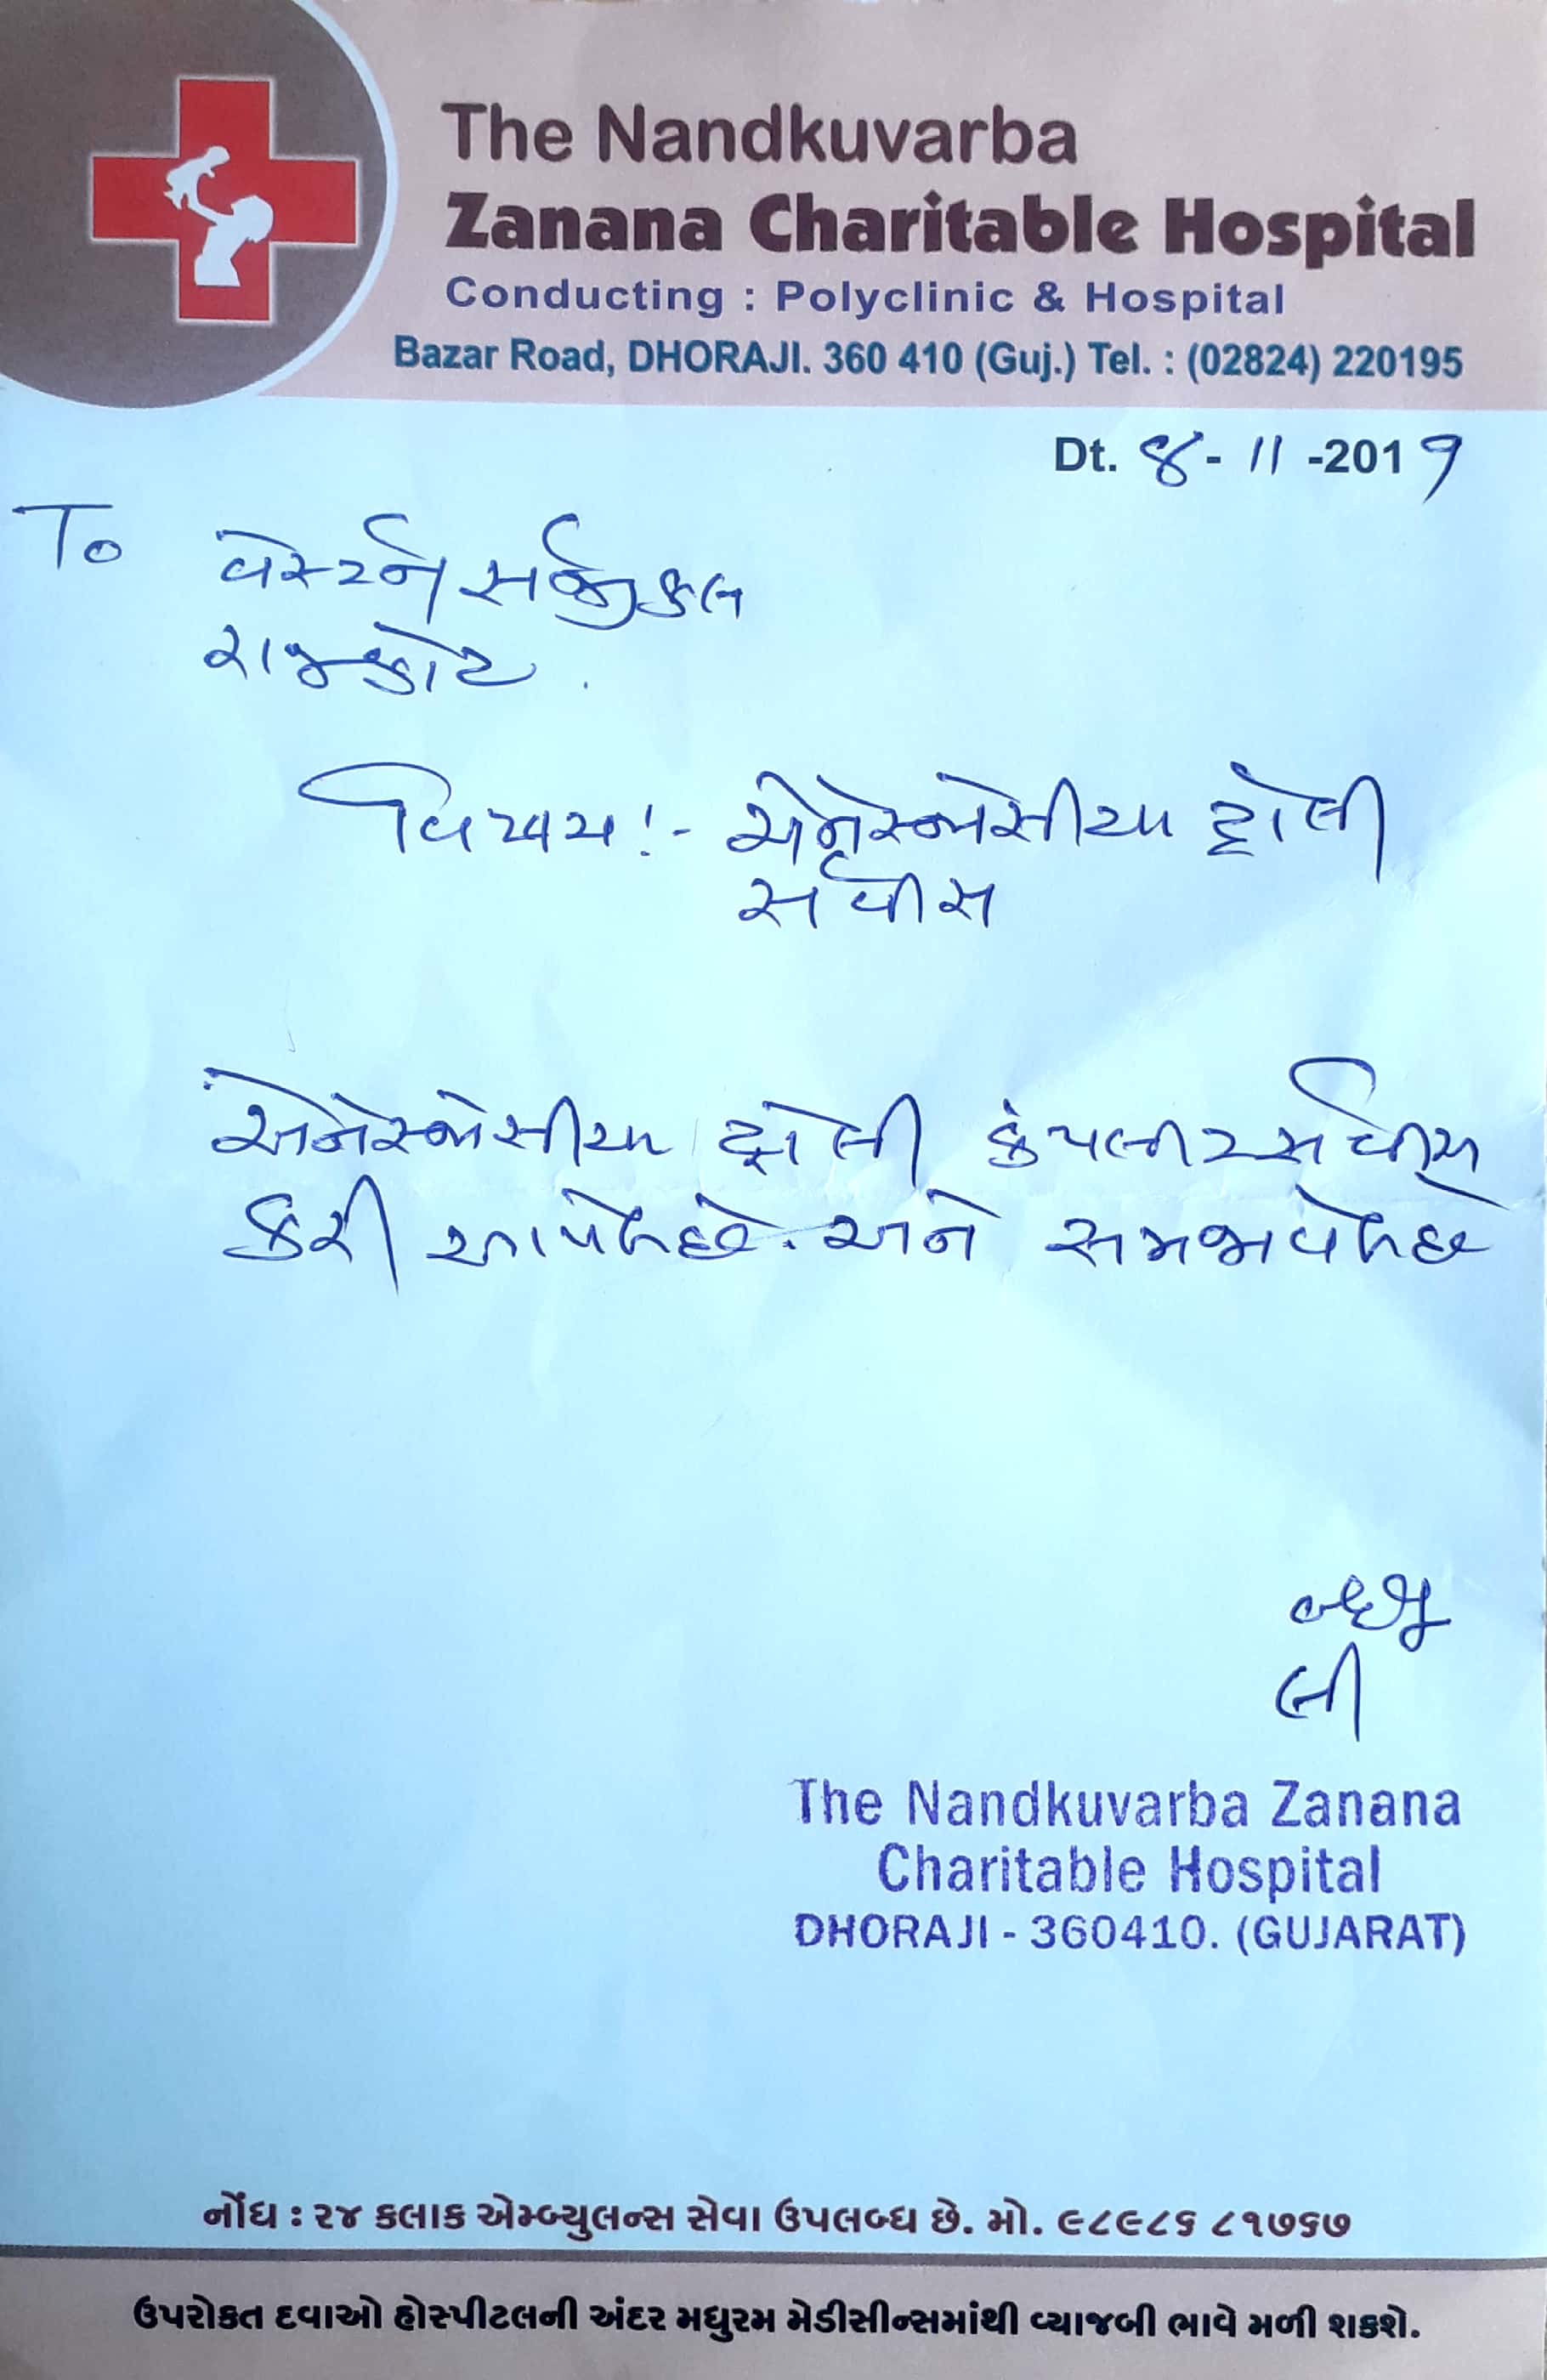 The Nandkuvarba
Zanana Charitable Hospital
Conducting : Polyclinic & Hospital
Bazar Road, DHORAJI. 360 410 (Guj.) Tel. : (02824) 220195
Dt. 8- 11 -2019
To વેસ્ટર્ન સર્જીકલ
રાજકોટ.
વિષય :- એનેસ્થેસીયા ટ્રોલી
સર્વીસ
એનેસ્થેસીયા ટ્રોલી કંપલીટ સર્વીસ
કરી આપેલ છે. અને સમજાવેલ છે
લી
The Nandkuvarba Zanana
Charitable Hospital
DHORAJI - 360410. (GUJARAT)
નોંધ : ૨૪ કલાક એમ્બ્યુલન્સ સેવા ઉપલબ્ધ છે. મો. ૯૮૯૮૬ ૮૧૭૬૭
ઉપરોક્ત દવાઓ હોસ્પીટલની અંદર મધુરમ મેડીસીન્સમાંથી વ્યાજબી ભાવે મળી શકશે.